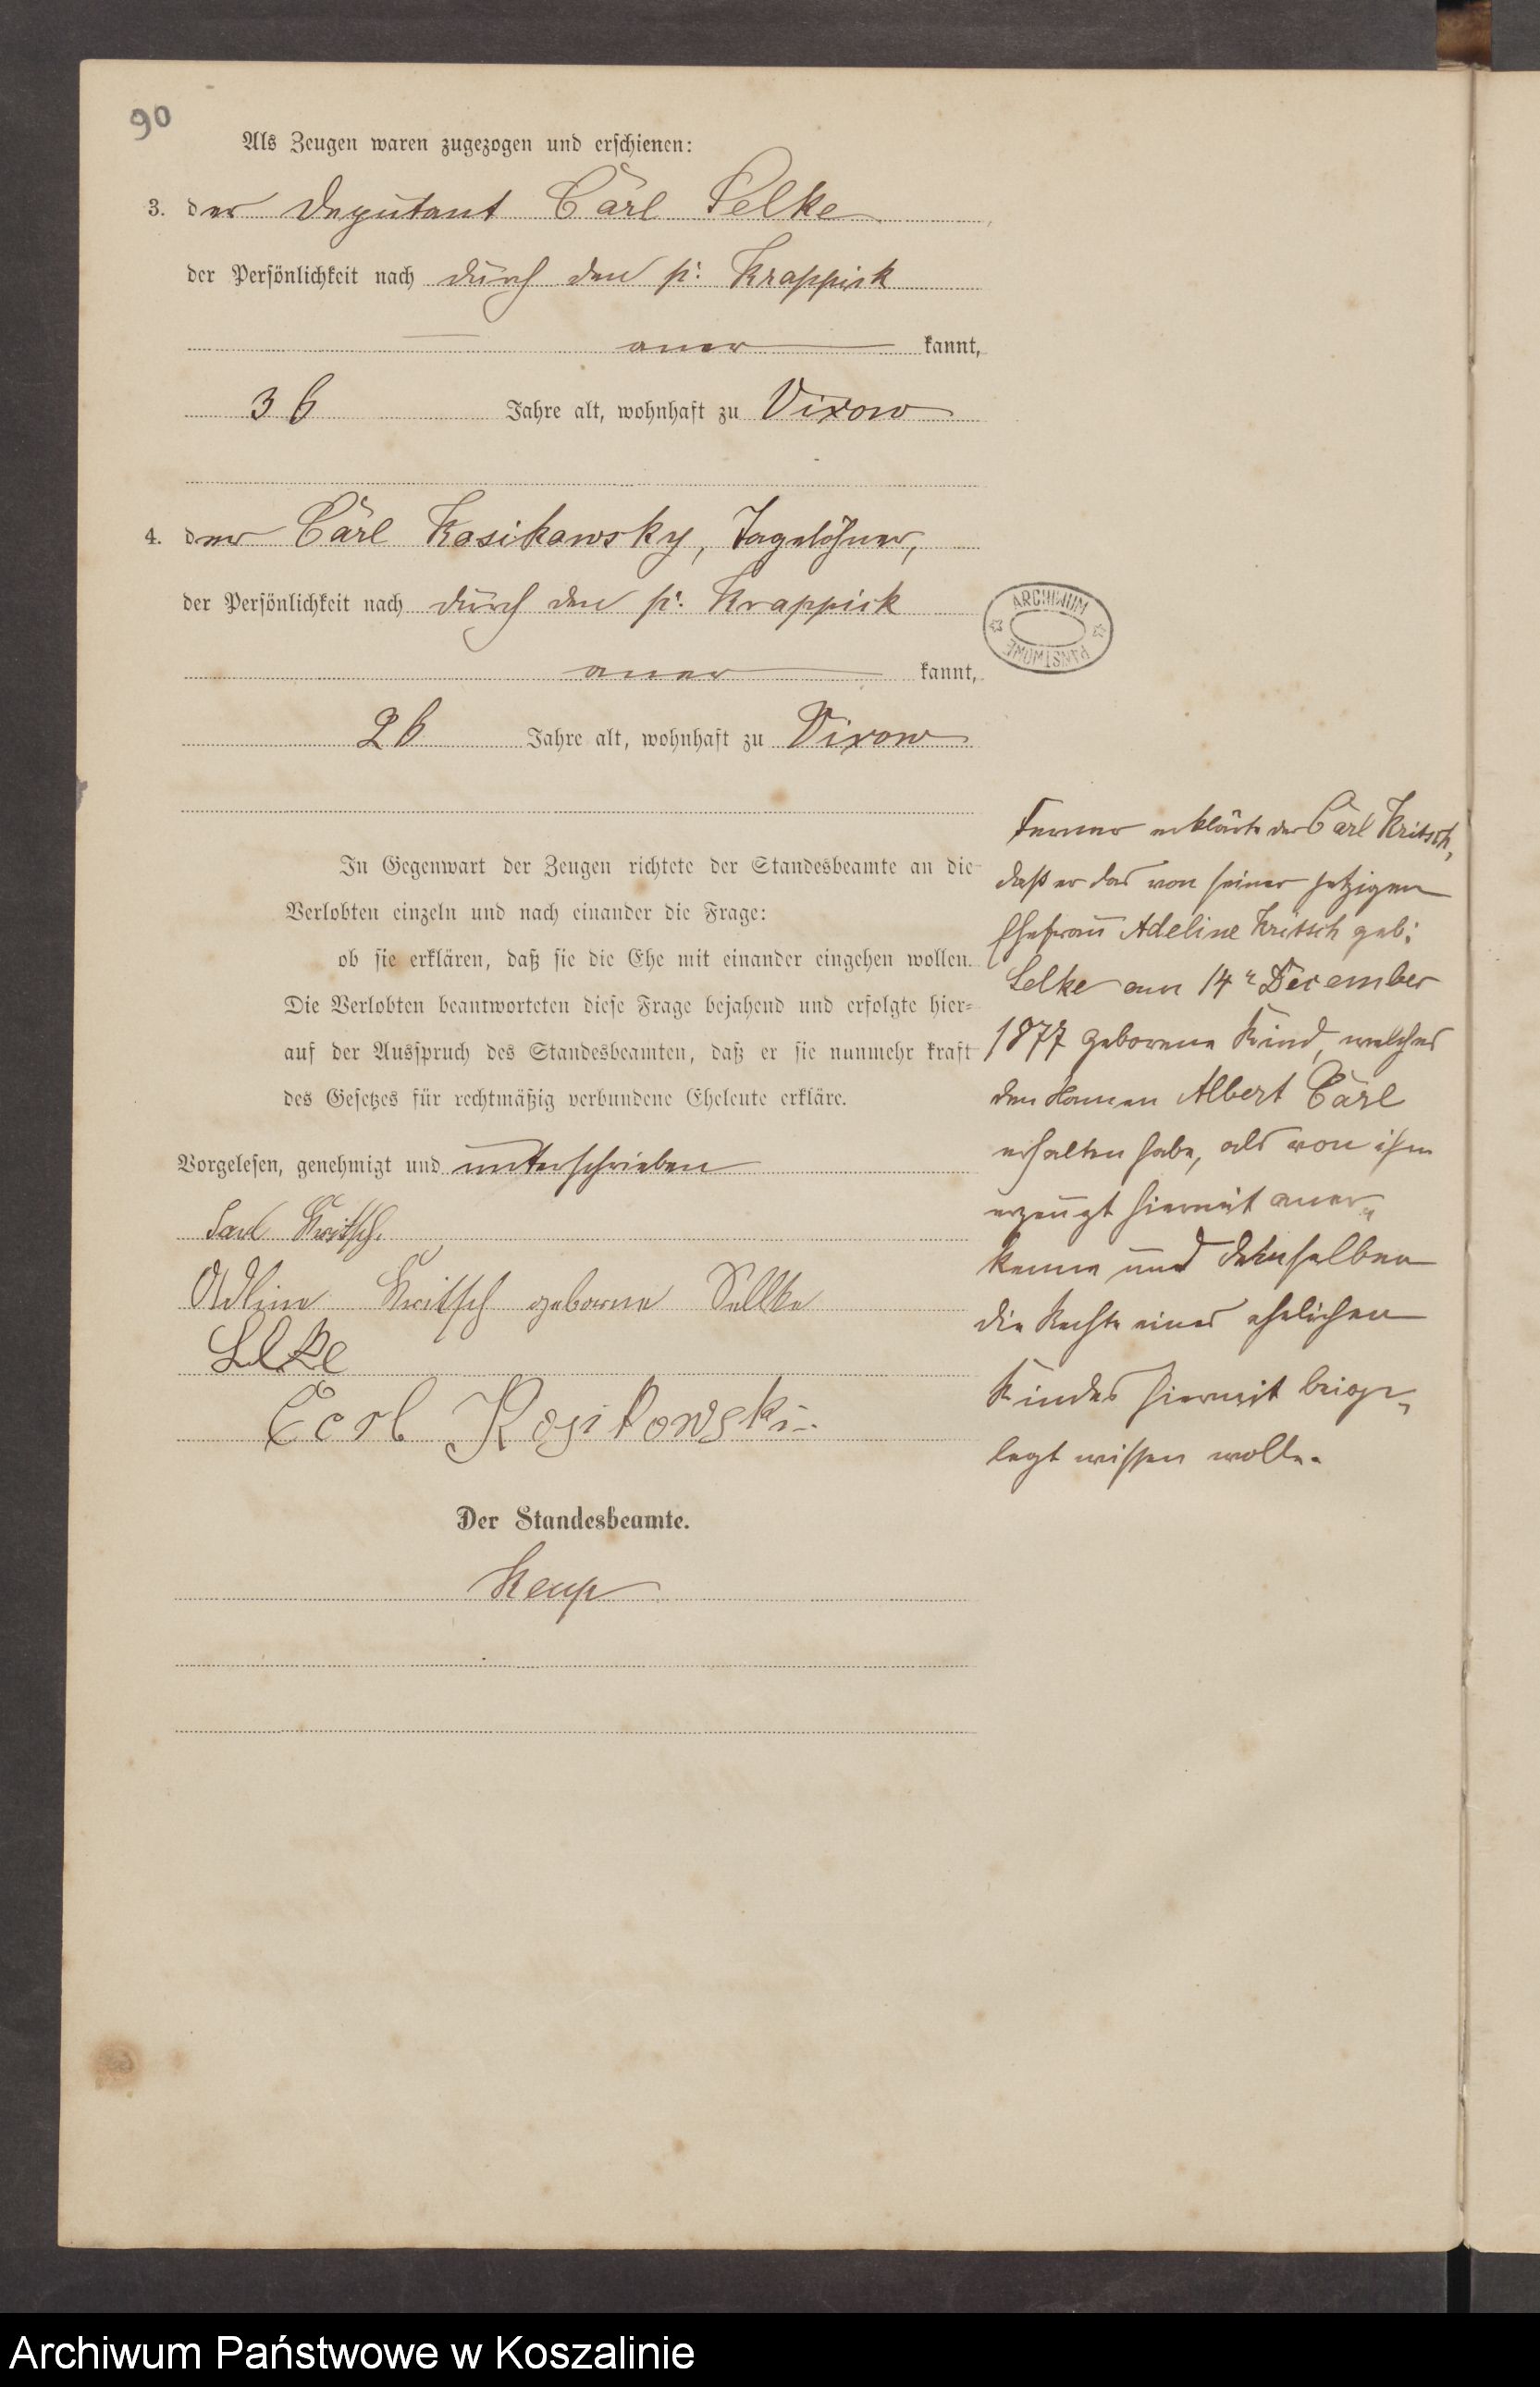 90
Als Zeugen waren zugezogen und erschienen:
3. der Deputant Carl Selke
der Persönlichkeit nach durch den p. Krappick
aner kannt,
36 Jahre alt, wohnhaft zu Vixow
4. der Carl Kosikowsky, Tagelöhner,
der Persönlichkeit nach durch den p. Krappick
aner kannt,
26 Jahre alt, wohnhaft zu Vixow
ARCHIWUM PAŃSTWOWE
In Gegenwart der Zeugen richtete der Standesbeamte an die
Verlobten einzeln und nach einander die Frage:
ob sie erklären, daß sie die Ehe mit einander eingehen wollen.
Die Verlobten beantworteten diese Frage bejahend und erfolgte hier-
auf der Ausspruch des Standesbeamten, daß er sie nunmehr kraft
des Gesetzes für rechtmäßig verbundene Eheleute erkläre.
Vorgelesen, genehmigt und unterschrieben
Carl Kritsch.
Adline Kritsch geborne Sellke
Selke
Carl Kosikowski
Der Standesbeamte.
Kemp
Ferner erklärte der Carl Kritsch,
daß er das von seiner jetzigen
Ehefrau Adeline Kritsch geb:
Selke am 14ᵗ December
1877 geborene Kind, welches
den Namen Albert Carl
erhalten habe, als von ihm
erzeugt hiermit aner-
kenne und demselben
die Rechte eines ehelichen
Kindes hiermit beige-
legt wissen wolle.
Archiwum Państwowe w Koszalinie